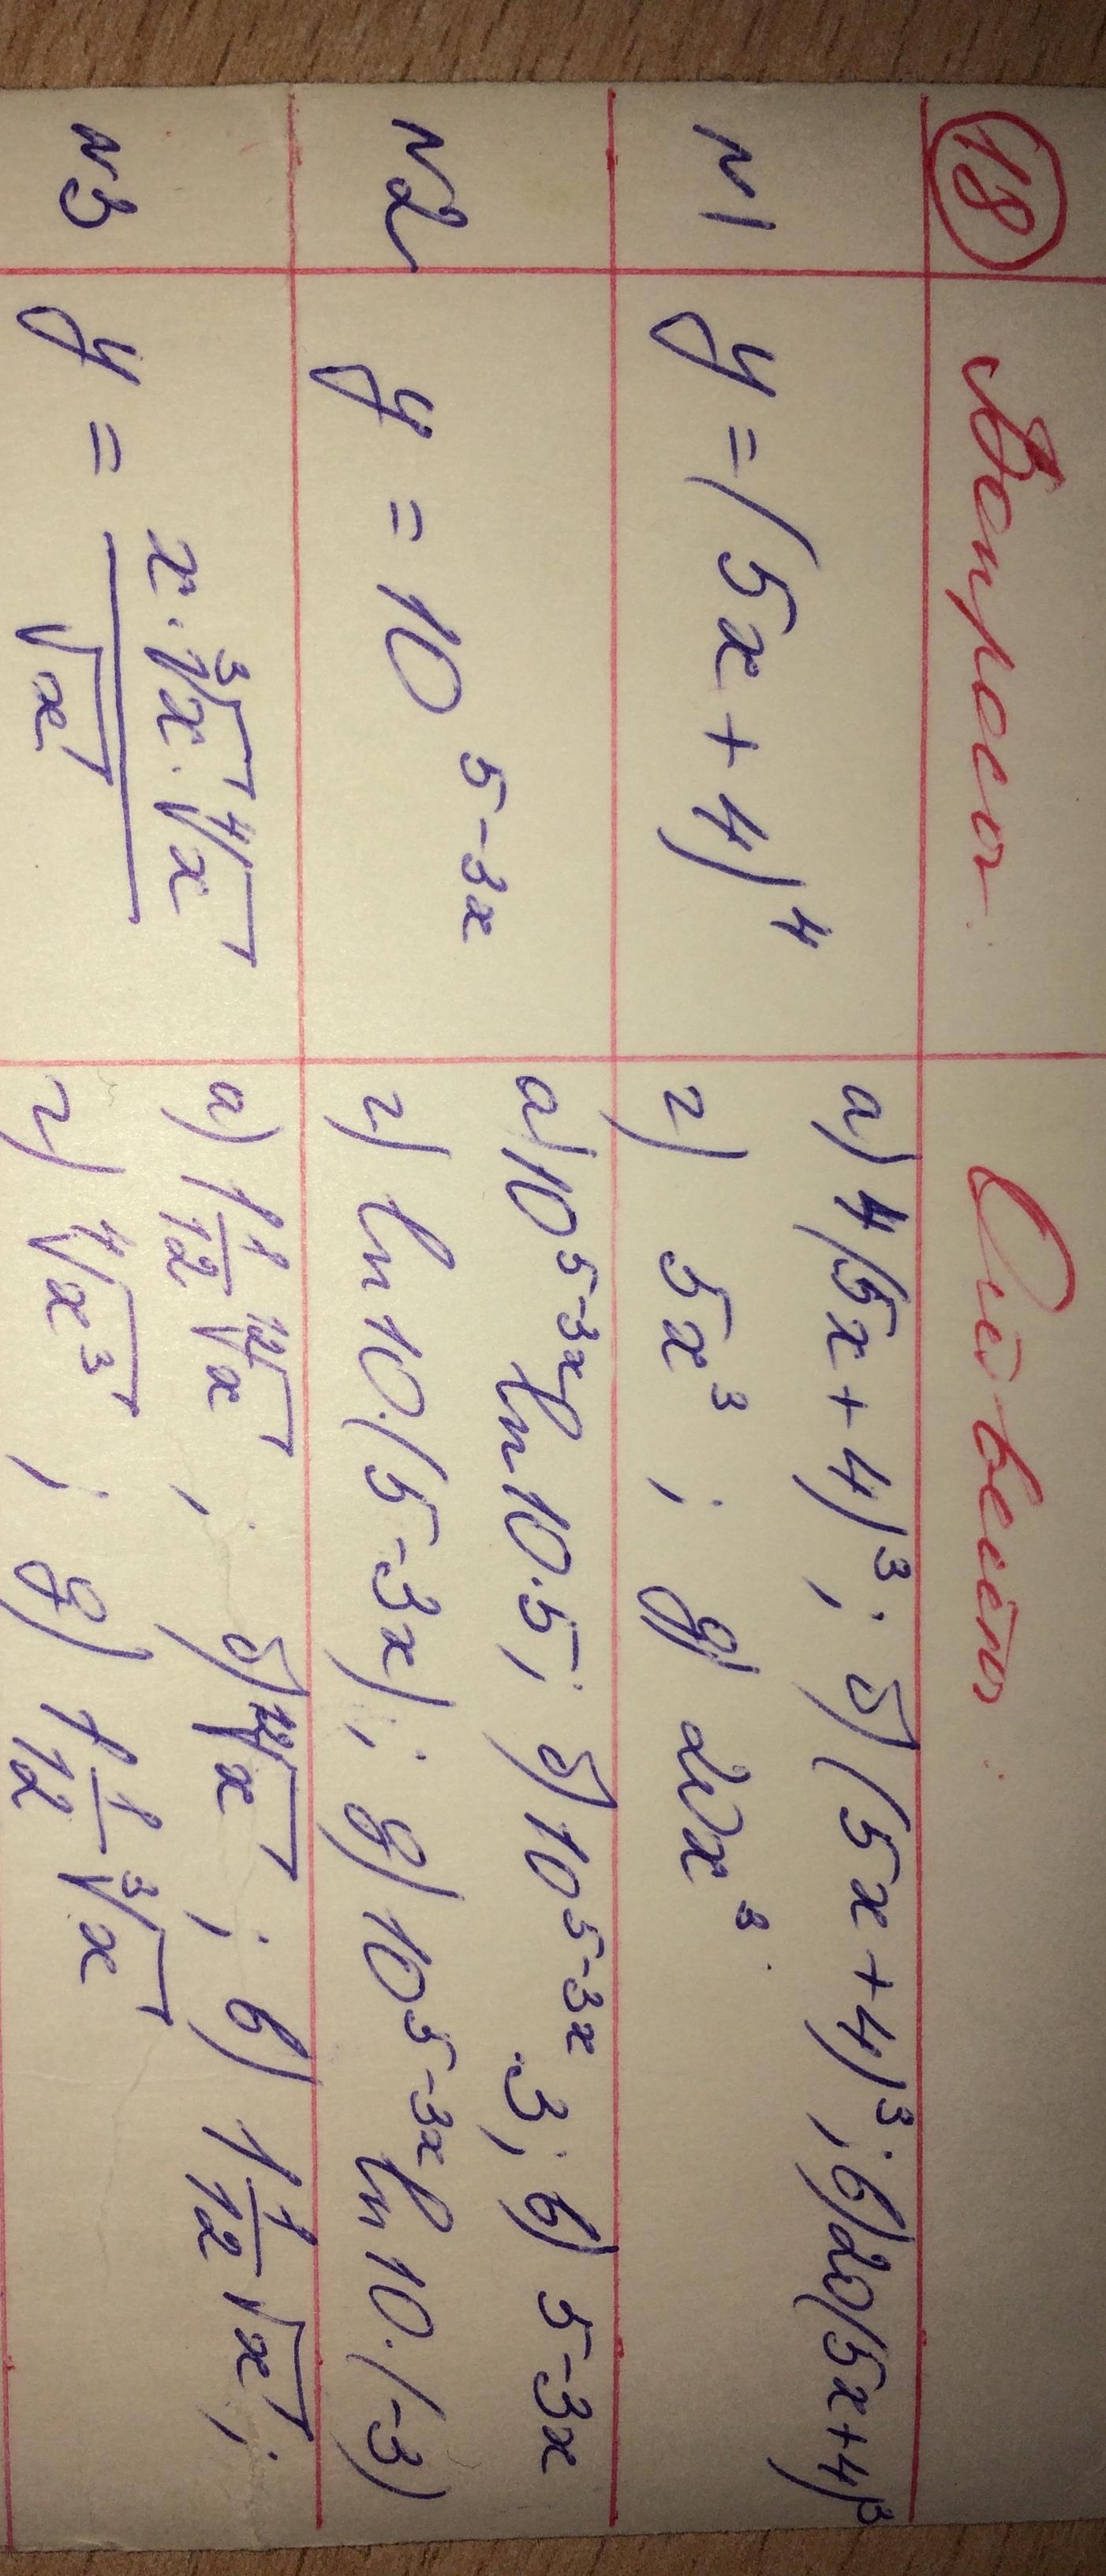 18 Вопрос. Ответ.
N1 y = (5x + 4)⁴ а) 4(5x + 4)³; б) (5x + 4)³; в) 20(5x+4)³
г) 5x³ ; д) 20x³.
N2 y = 10^(5-3x) а) 10^(5-3x) ln10·5; б) 10^(5-3x)·3; в) 5-3x
г) ln10·(5-3x); д) 10^(5-3x) ln10·(-3)
N3 y = (x·∛x·∜x)/√x а) 1 1/12 ¹²√x ; б) ¹²√x ; в) 1 1/12 √x ;
г) ∜x³ ; д) 1 1/12 ∛x